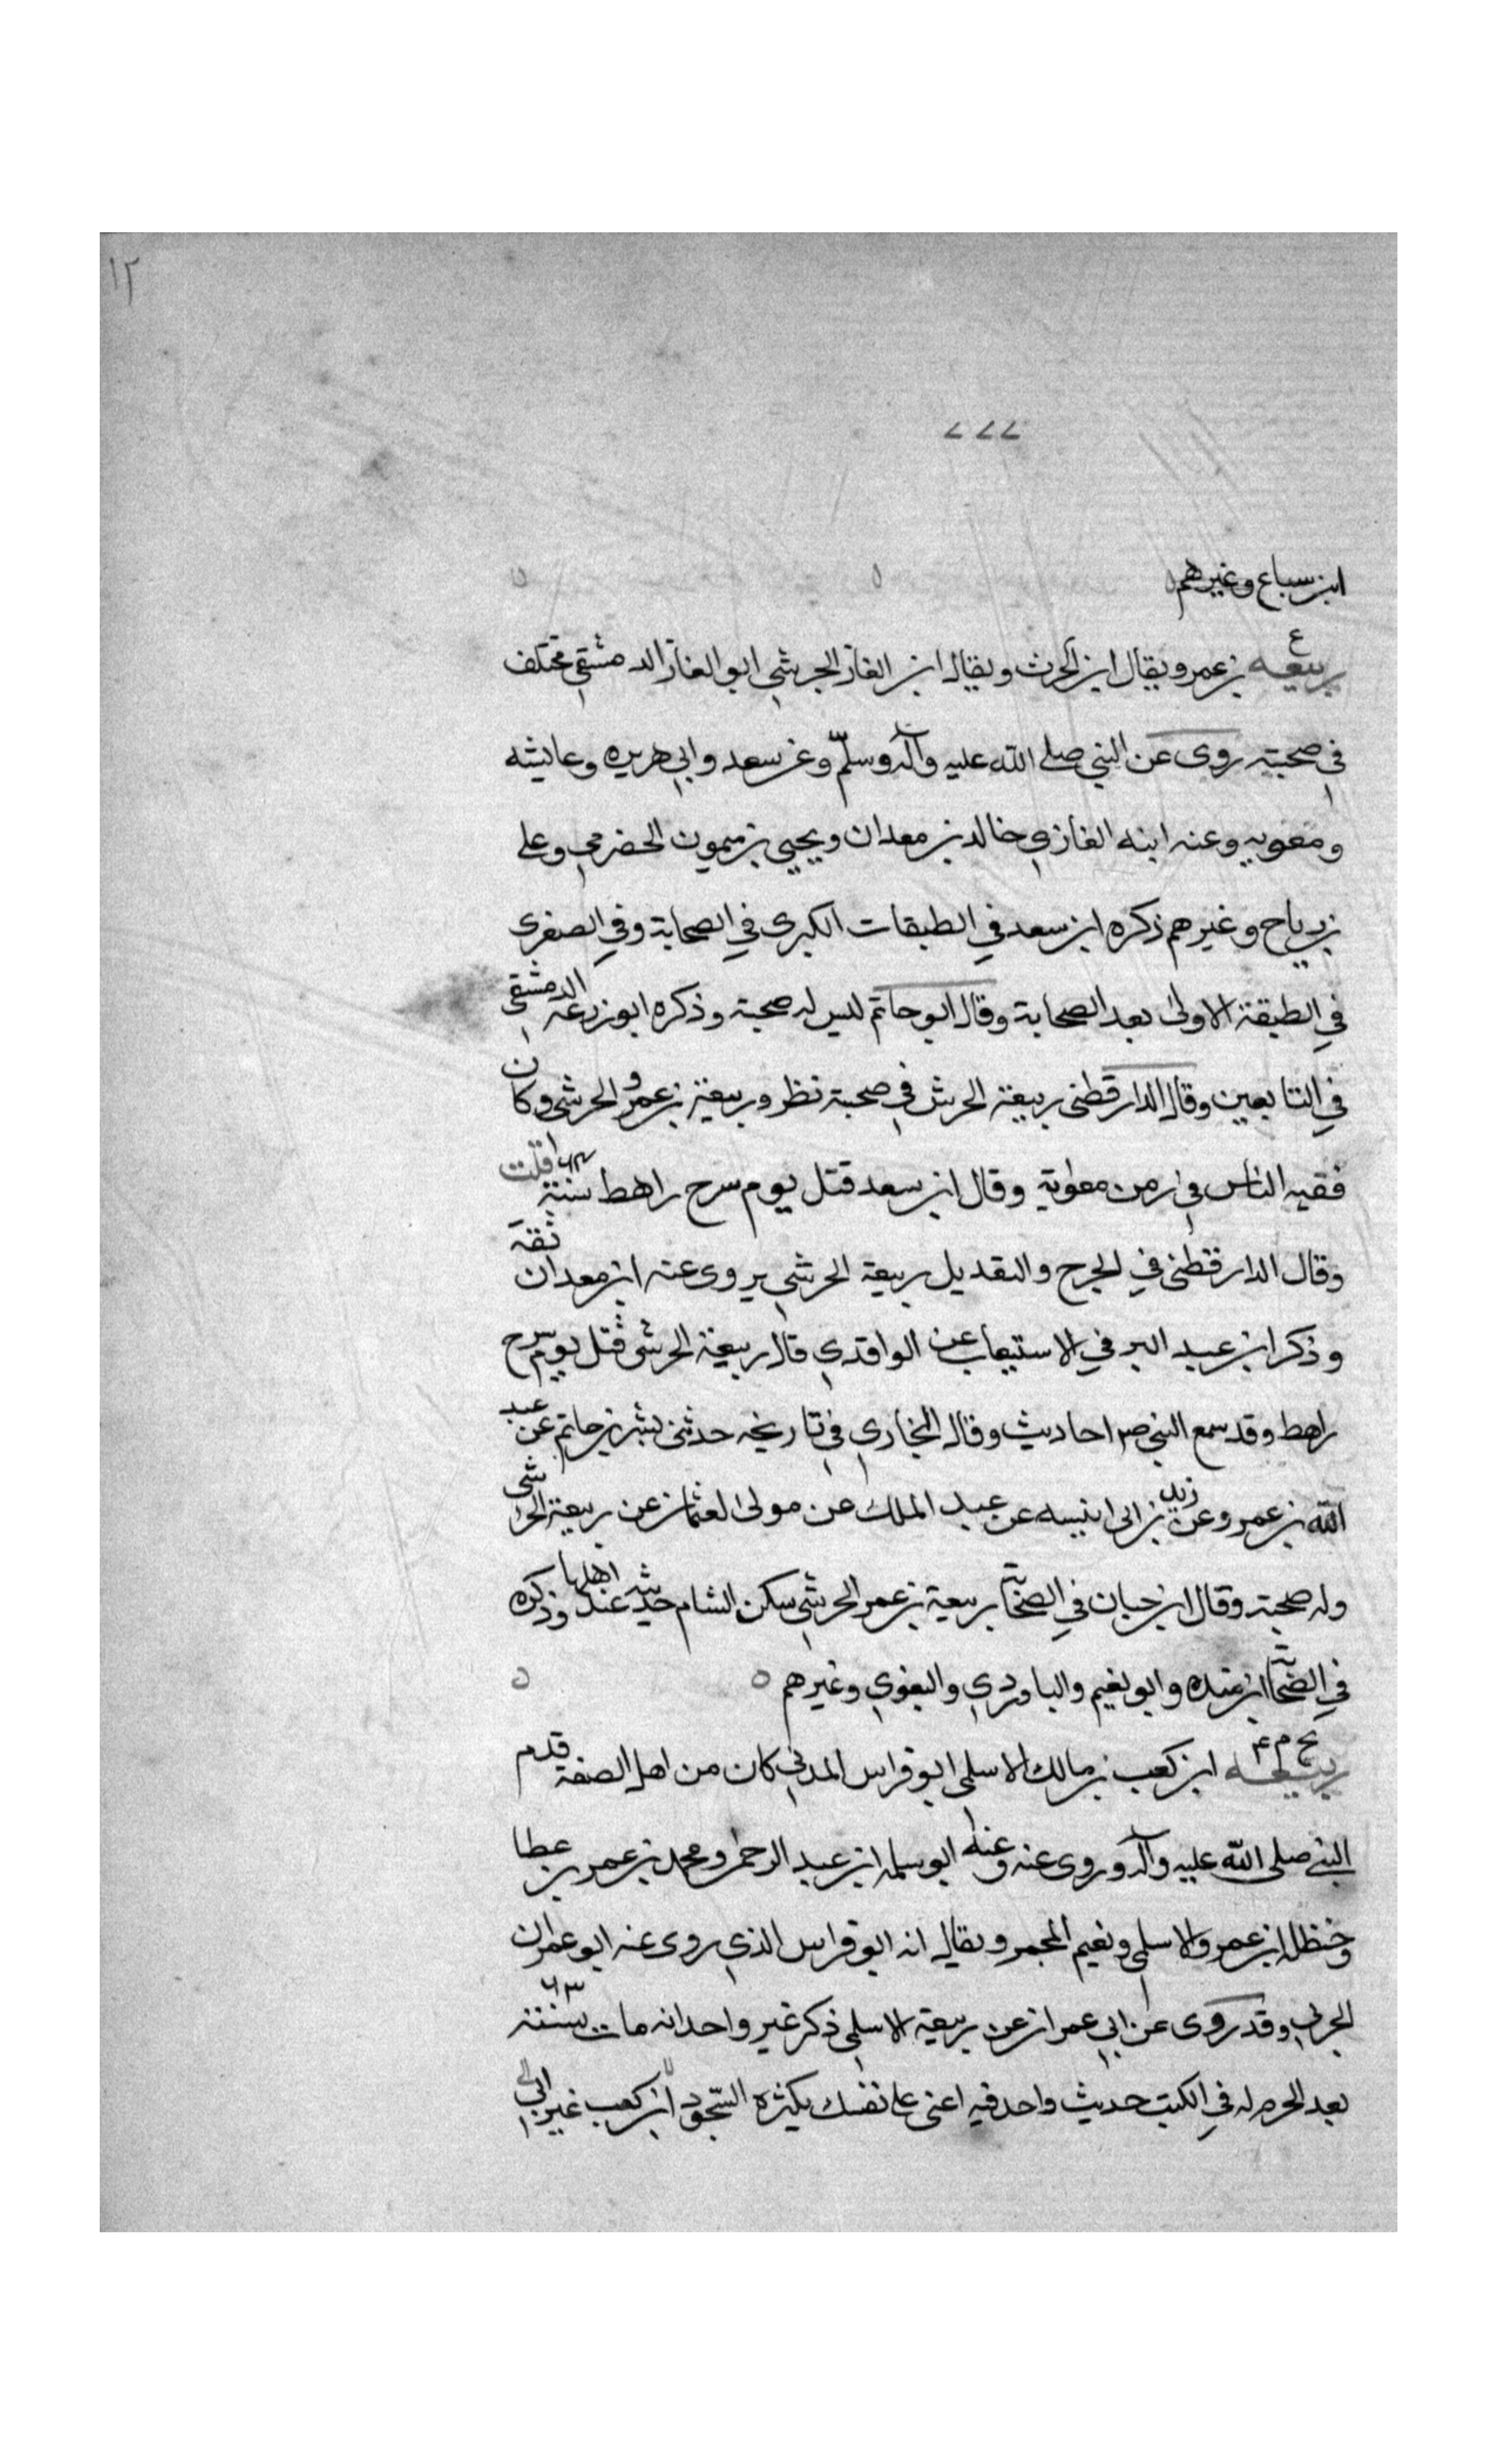 ١٢
٢٢٢
ابن سباع وغيرهم
ع
ربيعه بن عمرو ويقال ابن الحرث ويقال ابن الغاز الجرشي ابو الغاز الدمشقي مختلف
في صحبته روى عن النبي صلى الله عليه وآله وسلم وعن سعد وابي هريره وعايشه
ومعويه وعنه ابنه الغازي خالد بن معدان ويحيى بن ميمون الحضرمي وعلي
بن رباح وغيرهم ذكره ابن سعد في الطبقات الكبرى في الصحابة وفي الصغرى
في الطبقة الاولى بعد الصحابة وقال ابو حاتم ليس له صحبة وذكره ابو زرعه الدمشقي
في التابعين وقال الدارقطني ربيعة الحرش في صحبة نظر وربيعة بن عمرو الحرشي وكان
فقيه الناس في زمن معوية وقال ابن سعد قتل يوم مرج راهط سنة ٦٤ قلت
وقال الدارقطني في الجرح والتعديل ربيعة الحرشي يروى عنه ابن معدان ثقة
وذكر ابن عبد البر في الاستيعاب عن الواقدي قال ربيعة الحرشي قتل يوم مرج
راهط وقد سمع النبي صم احاديث وقال البخاري في تاريخه حدثني بشر بن حاتم عن عبد
الله بن عمرو عن زيد بن ابى انيسه عن عبد الملك عن مولى لعثمان عن ربيعة الحرشي
وله صحبة وقال ابن حبان في الصحابة ربيعة بن عمر الحرشي سكن الشام حديثه عند اهلها وذكره
في الصحابة ابن منده وابو نعيم والباوردي والبغوي وغيرهم
بخ م ٤
ربيعه ابن كعب بن مالك الاسلمى ابو فراس المدني كان من اهل الصفة قدم
النبي صلى الله عليه وآله وروى عنه وعنه ابو سلمه ابن عبد الرحمن ومحمد بن عمرو بن عطا
وحنظله ابن عمرو الاسلمى ونعيم المجمر ويقال انه ابو فراس الذي روى عنه ابو عمران
الجوني وقد روى عن ابي عمران عن ربيعة الاسلمي ذكر غير واحد انه مات سنة ٦٣
بعد الحره له في الكتب حديث واحد فيه اعنى على نفسك بكثرة السجود ابن كعب غير ابي